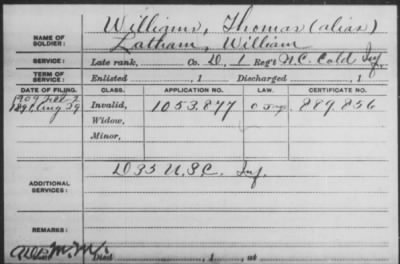 NAME OF SOLDIER: Williams, Thomas (alias)
Latham, William
SERVICE: Late rank, Co. D, 1 Reg't N.C. Cold Inf.
TERM OF SERVICE: Enlisted , 1 Discharged , 1
DATE OF FILING. CLASS. APPLICATION NO. LAW. CERTIFICATE NO.
1891 Aug 29 Invalid, 1053,877 889,856
Widow,
Minor,
ADDITIONAL SERVICES: D 35 U.S.C. Inf.
REMARKS:
Died , 1 , at